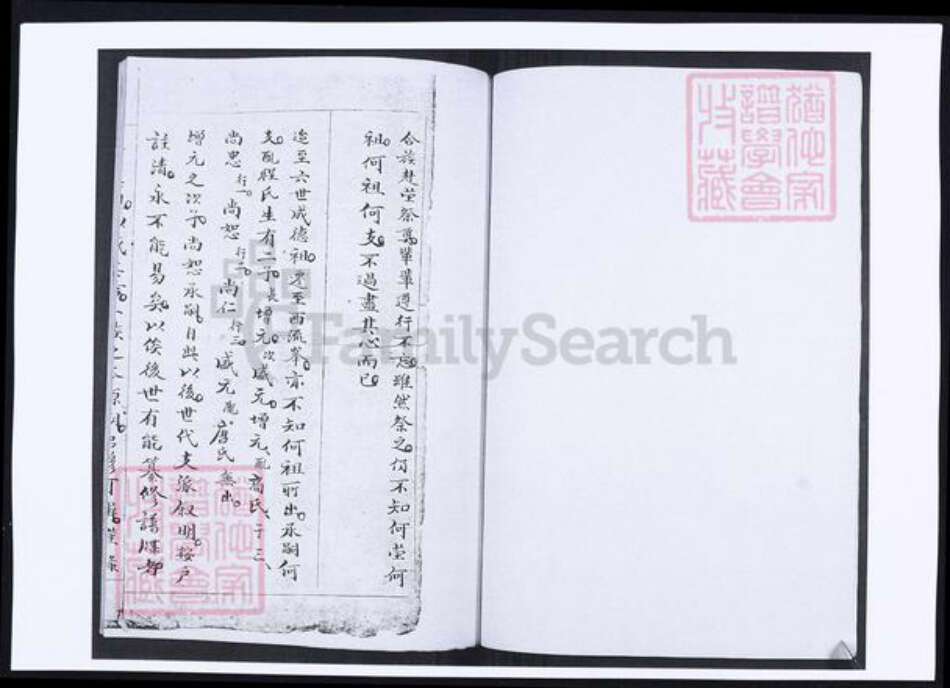 合族赴塋祭奠輩輩遵行不忘雖然祭之仍不知何塋何
祖何祖何支不過盡其心而已
迨至六世成德祖北至西流峯亦不知何祖所出承嗣何
支配程氏生有二子長增元次咸元增元配喬氏子三
尚忠行一尚恕行二尚仁行三咸元配唐氏無出
增元之次子尚恕承嗣自此以後世代支派叙明按户
註清永不能易矣以俟後世有能纂修譜牒者
猶他家
譜學會
收藏
FamilySearch